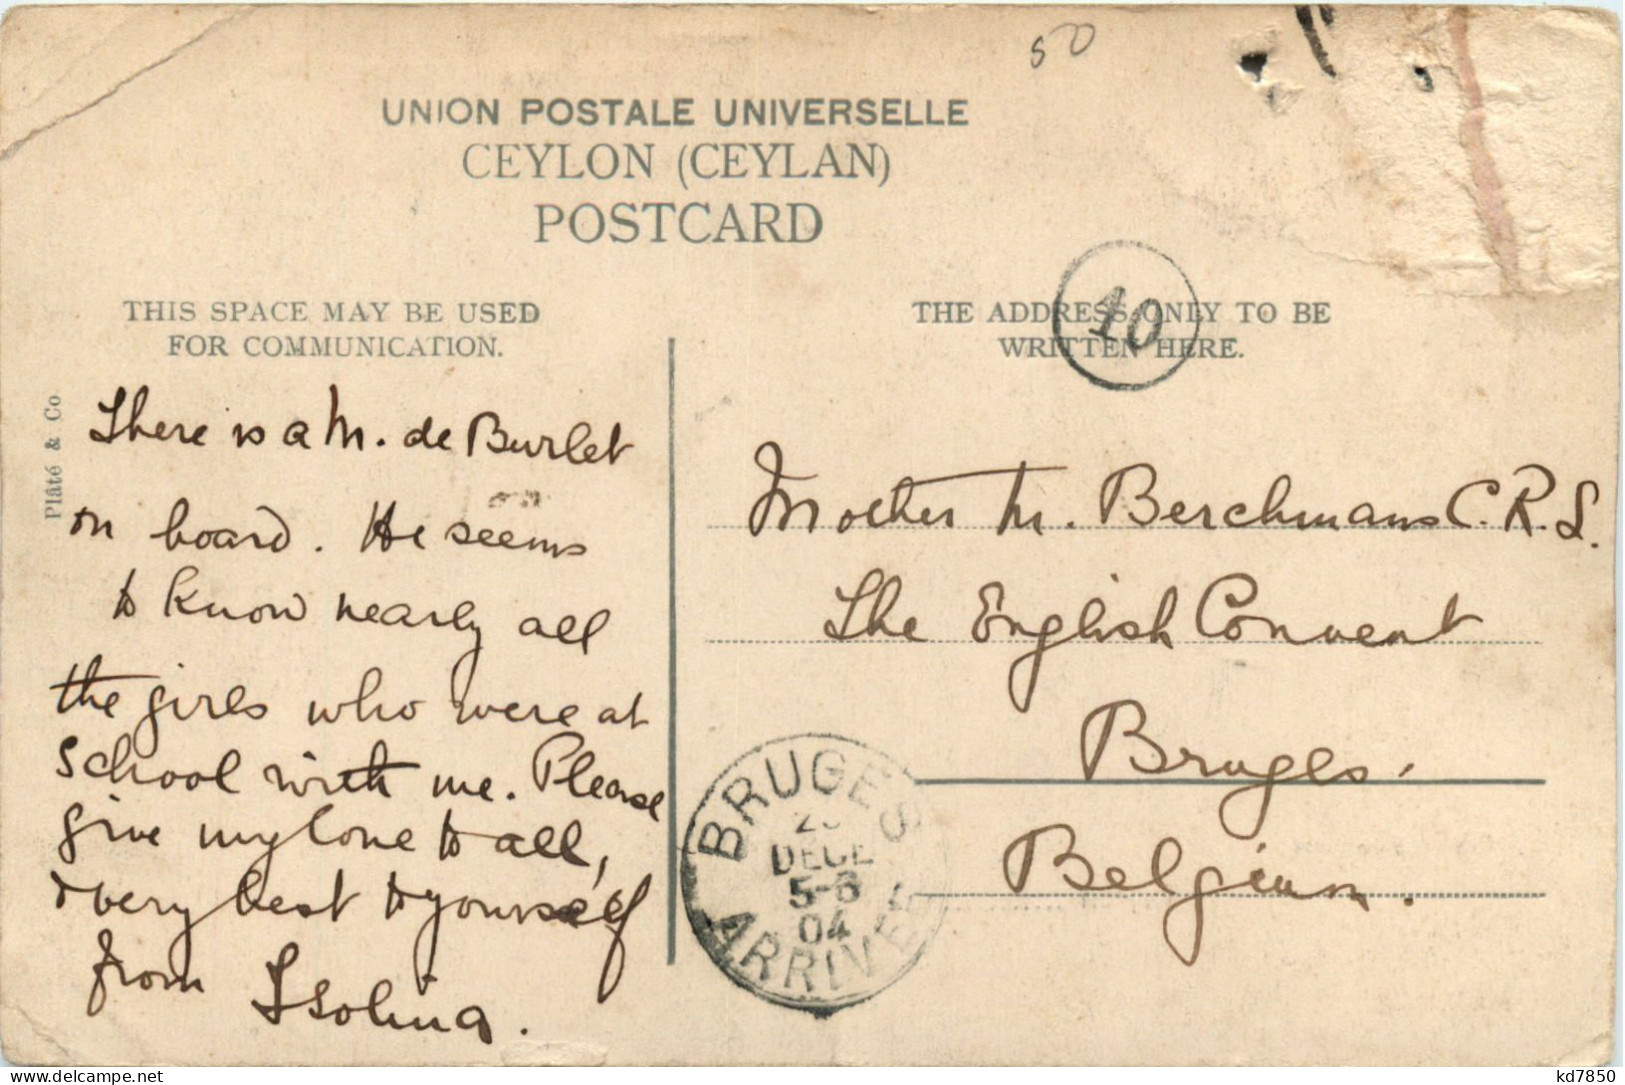 50
UNION POSTALE UNIVERSELLE
CEYLON (CEYLAN)
POSTCARD
THIS SPACE MAY BE USED
FOR COMMUNICATION.
THE ADDRESS ONLY TO BE
WRITTEN HERE.
10
Plâté & Co
There is a M. de Burlet
on board. He seems
to know nearly all
the girls who were at
school with me. Please
give my love to all,
& very best to yourself
from Isolina.
Mother M. Berchmans C.R.L.
The English Convent
Bruges.
Belgium.
BRUGES
DECE
5-6
04
ARRIVEE
www.delcampe.net
kd7850